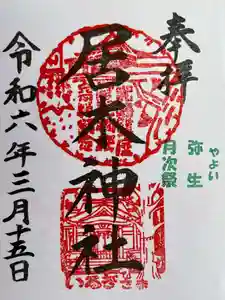 奉拝
やよい
弥生
月次祭
居木神社
令和六年三月十五日